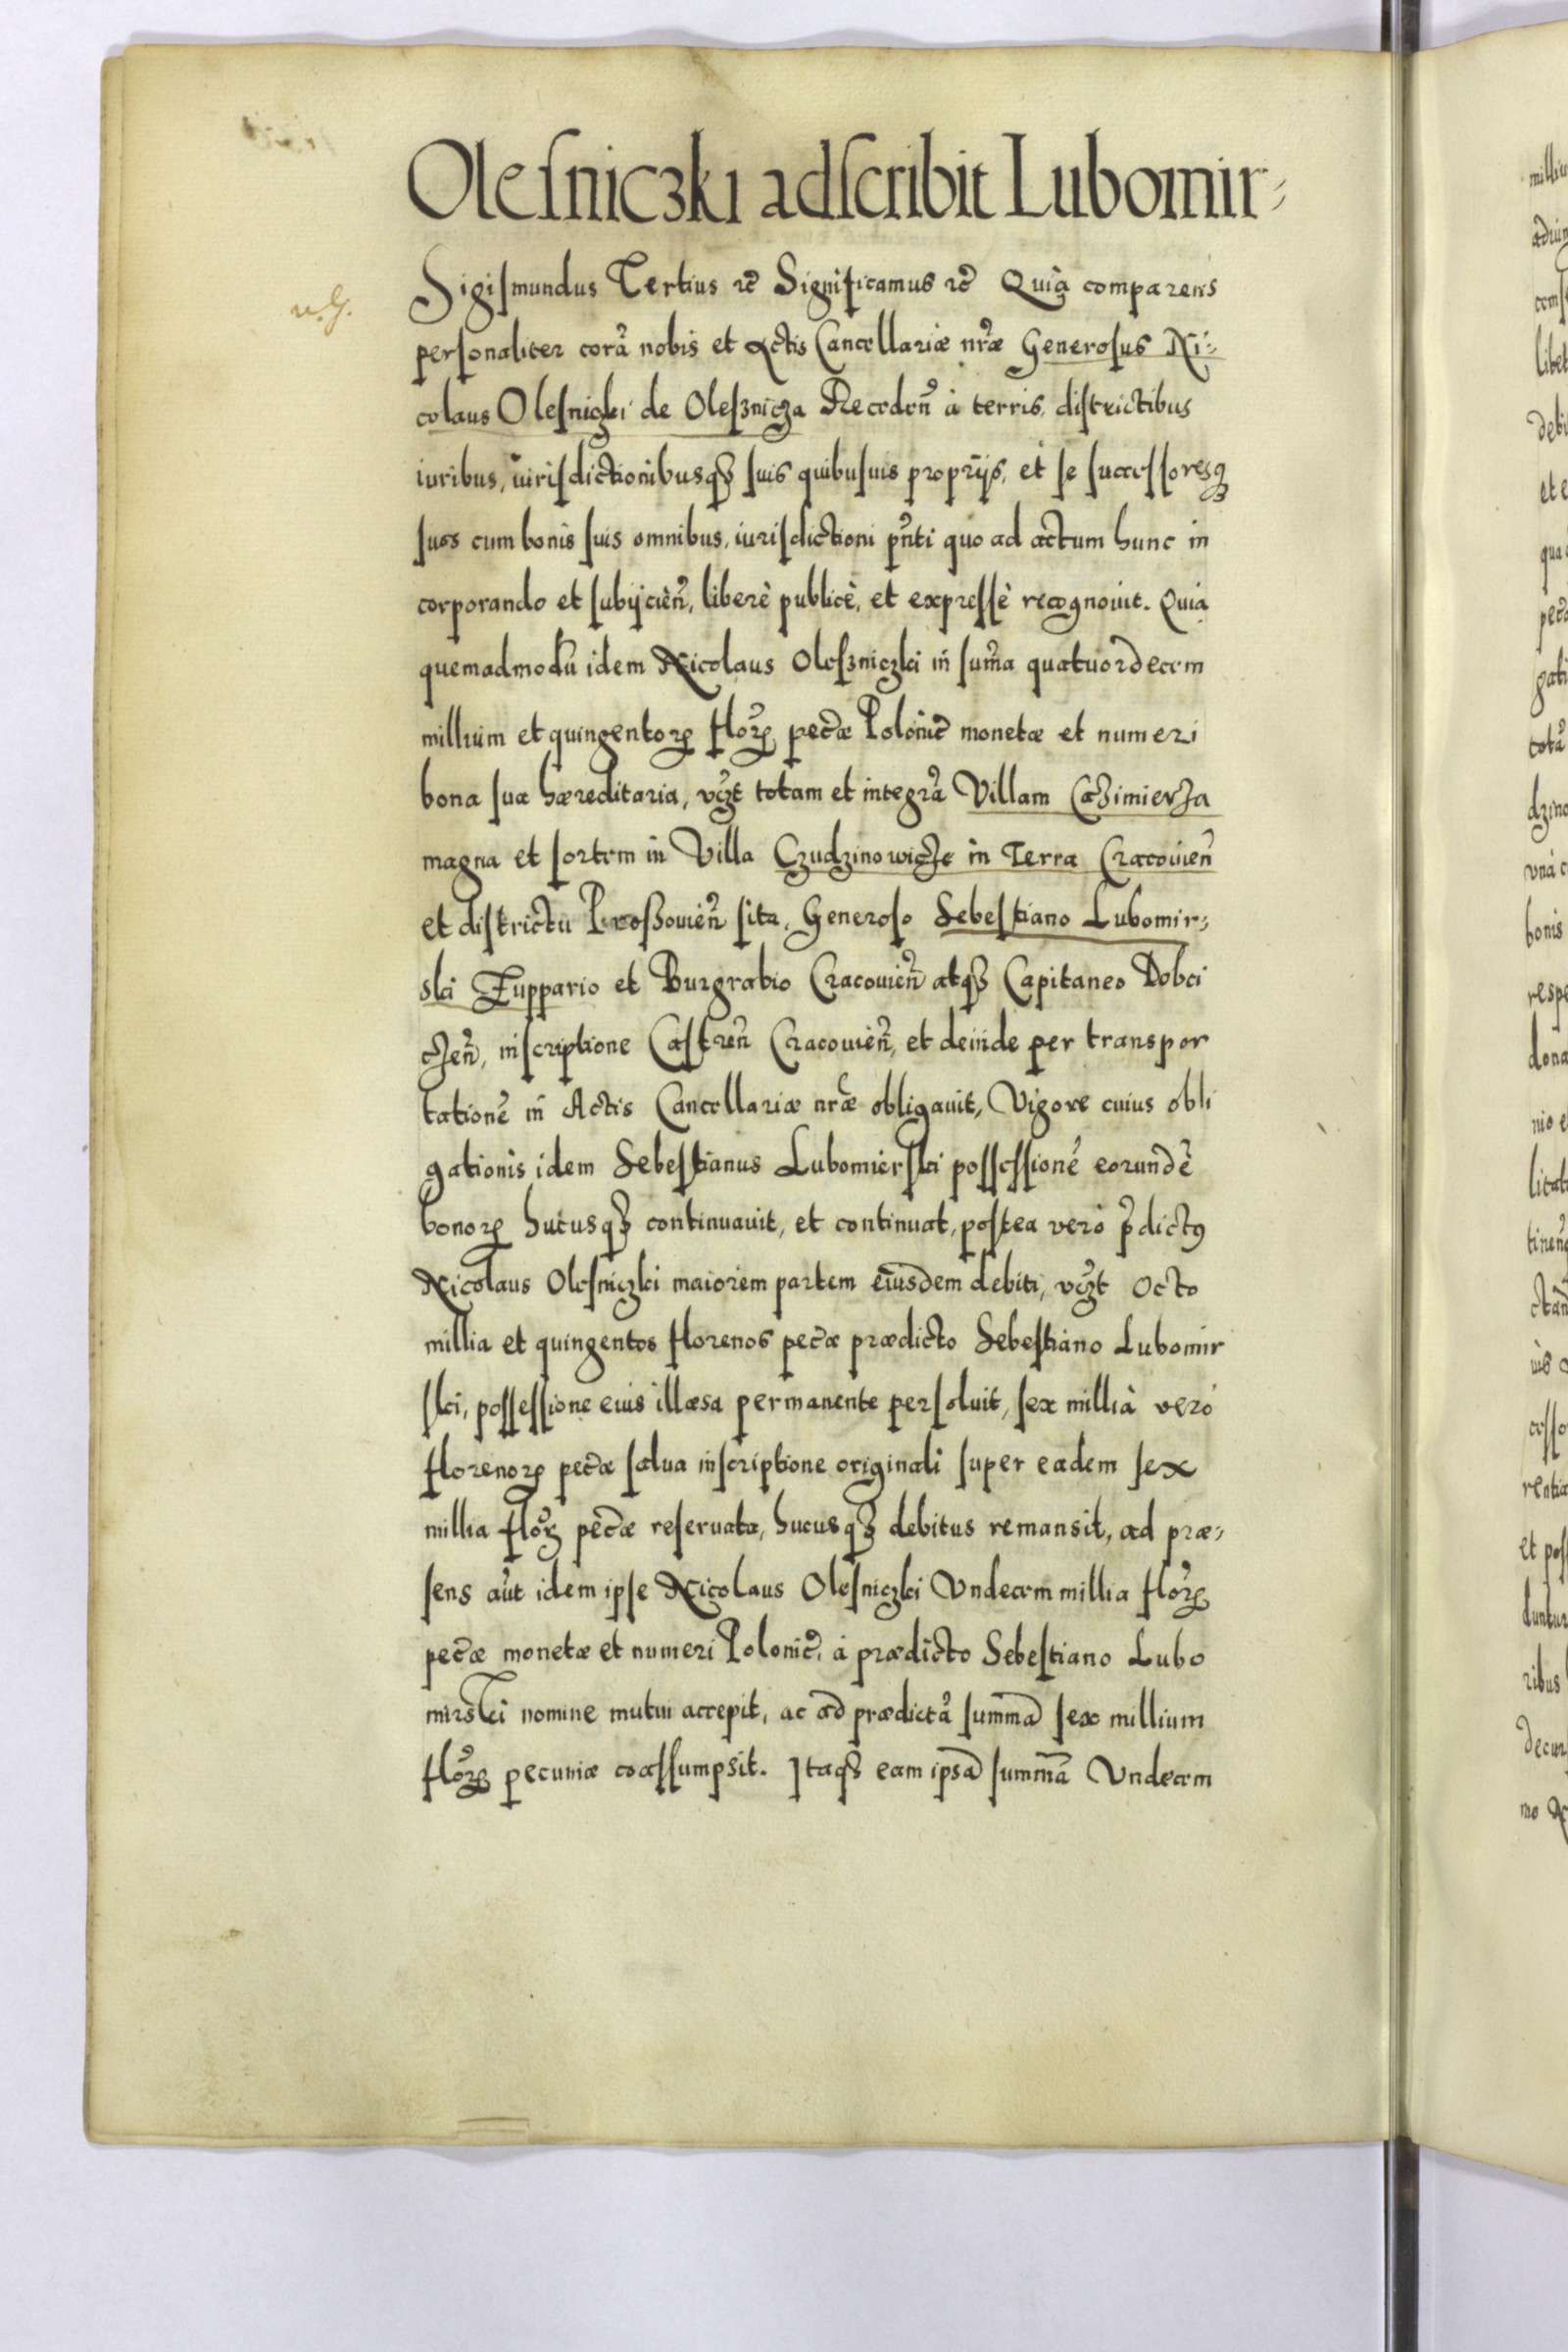 Oleſniczki adſcribit Lubomir⸗
Sigiſmundus Tertius ꝛc̃ Significamus ꝛc̃ Quia comparens
perſonaliter corã nobis et Actis Cancellariæ nr̃æ Generoſus Ni⸗
colaus Oleſniczki de Oleſznicza Recedeñ à terris, diſtrictibus
iuribus, iuriſdictionibusqꝫ ſuis quibuſuis proprijs, et ſe ſucceſſoresqꝫ
ſuos cum bonis ſuis omnibus, iuriſdictioni pñti quo ad actum hunc in
corporando et ſubijcieñ, liberè publicè, et expreſſè recognouit. Quia
quemadmodũ idem Nicolaus Oleſzniczki in ſum̃a quatuordecem
millium et quingentoꝝ floꝝ̃ pec̃æ Polonic̃ monetæ et numeri
bona ſua hæreditaria, vꝫt totam et integrã Villam Cazimierza
magna et ſortem in Villa Czudzinowicze in Terra Cracouieñ
et diſtrictu Proſzouieñ ſita, Generoſo Sebeſtiano Lubomir⸗
ski Zuppario et Burgrabio Cracouieñ atqꝫ Capitaneo Dobci
czeñ, inſcriptione Caſtreñ Cracouieñ, et deinde per transpor
tationẽ in Actis Cancellariæ nr̃æ obligauit, Vigore cuius obli
gationis idem Sebeſtianus Lubomierſki poſſeſſionẽ eorundẽ
bonoꝝ hucusqꝫ continuauit, et continuat, poſtea verò p̃dictꝰ
Nicolaus Oleſniczki maiorem partem eiusdem debiti, vꝫt Octo
millia et quingentos florenos pec̃æ prædicto Sebeſtiano Lubomir
ſki, poſſeſſione eius illæsa permanente perſoluit, ſex millia verò
florenoꝝ pec̃æ ſalua inſcriptione originali ſuper eadem ſex
millia floꝝ̃ pec̃æ reſeruata, hucusqꝫ debitus remansit, ad præ⸗
ſens aũt idem ipſe Nicolaus Oleſniczki Vndecem millia floꝝ̃
pec̃æ monetæ et numeri Polonic̃, à prædicto Sebeſtiano Lubo
mirski nomine mutui accepit, ac ad prædictã ſummã ſex millium
floꝝ̃ pecuniæ coaſſumpsit. Itaqꝫ eam ipsã ſummã Vndecem